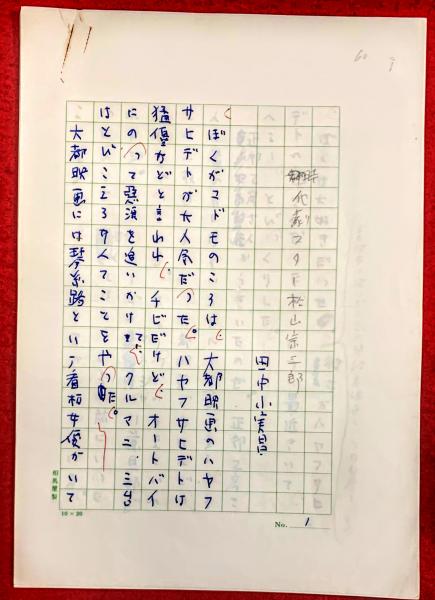 時代劇スタア松山宗三郎
田中小実昌
ぼくがコドモのころは、大都映画のハヤフ
サヒデトが大人気だった。ハヤフサヒデトは
猛優などと言われ、チビだけど、オートバイ
にのって悪漢を追いかけて、クルマ二、三台
はとびこえるナンてことをやった。
大都映画には琴糸路という看板女優がいて
相馬屋製
10×20
No. 1